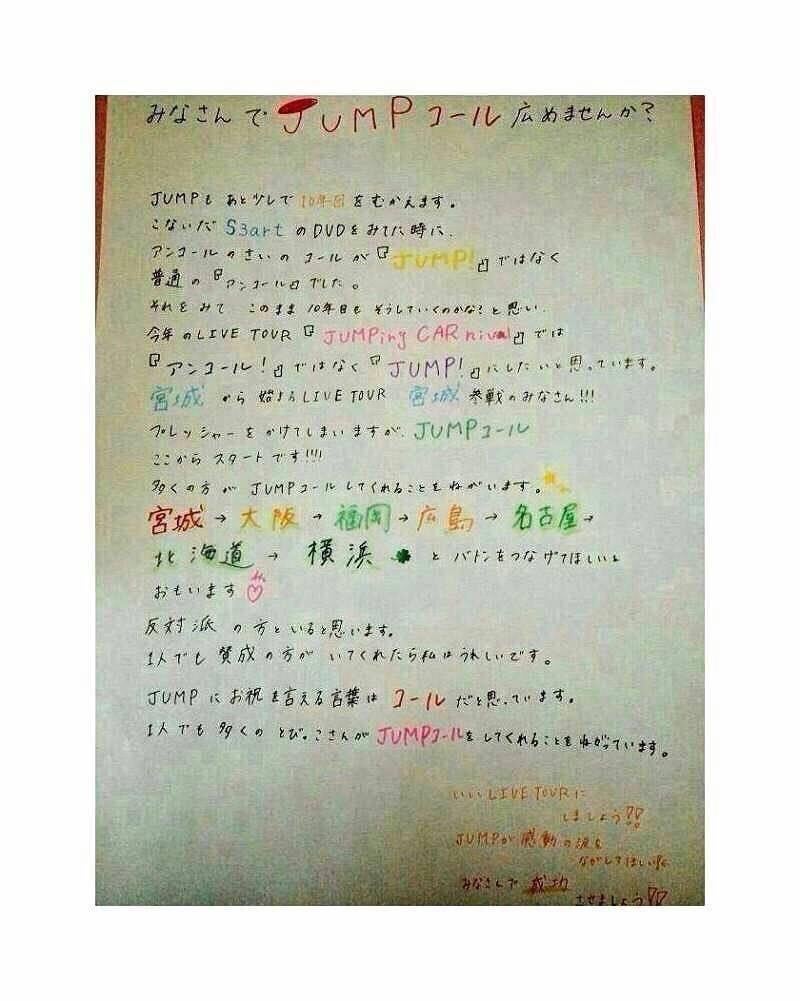 みなさんで JUMPコール 広めませんか?
JUMPも あと少しで 10年目を むかえます。
こないだ S3art のDVDをみてた時に、
アンコールのさいの コールが『JUMP!』ではなく
普通の『アンコール』でした。
それをみて このまま 10年目も そうしていくのかな?と思い、
今年のLIVE TOUR 『JUMPing CARnival』では
『アンコール!』ではなく『JUMP!』にしたいと思っています。
宮城 から 始まるLIVE TOUR 宮城 参戦のみなさん!!!
プレッシャーをかけてしまいますが、JUMPコール
ここから スタートです!!!!
多くの方が JUMPコールしてくれることをねがいます。
宮城→大阪→福岡→広島→名古屋→
北海道→横浜 と バトンをつなげてほしいと
おもいます
反対派の方といると思います。
1人でも 賛成の方が いてくれたら私はうれしいです。
JUMPにお祝を言える言葉は コールだと思っています。
1人でも多くの とびっこさんが JUMPコールをしてくれることをねがっています。
いいLIVE TOURに
しましょう!!
JUMPが感動の涙を
ながしてほしい
みなさんで 成功
させましょう!!